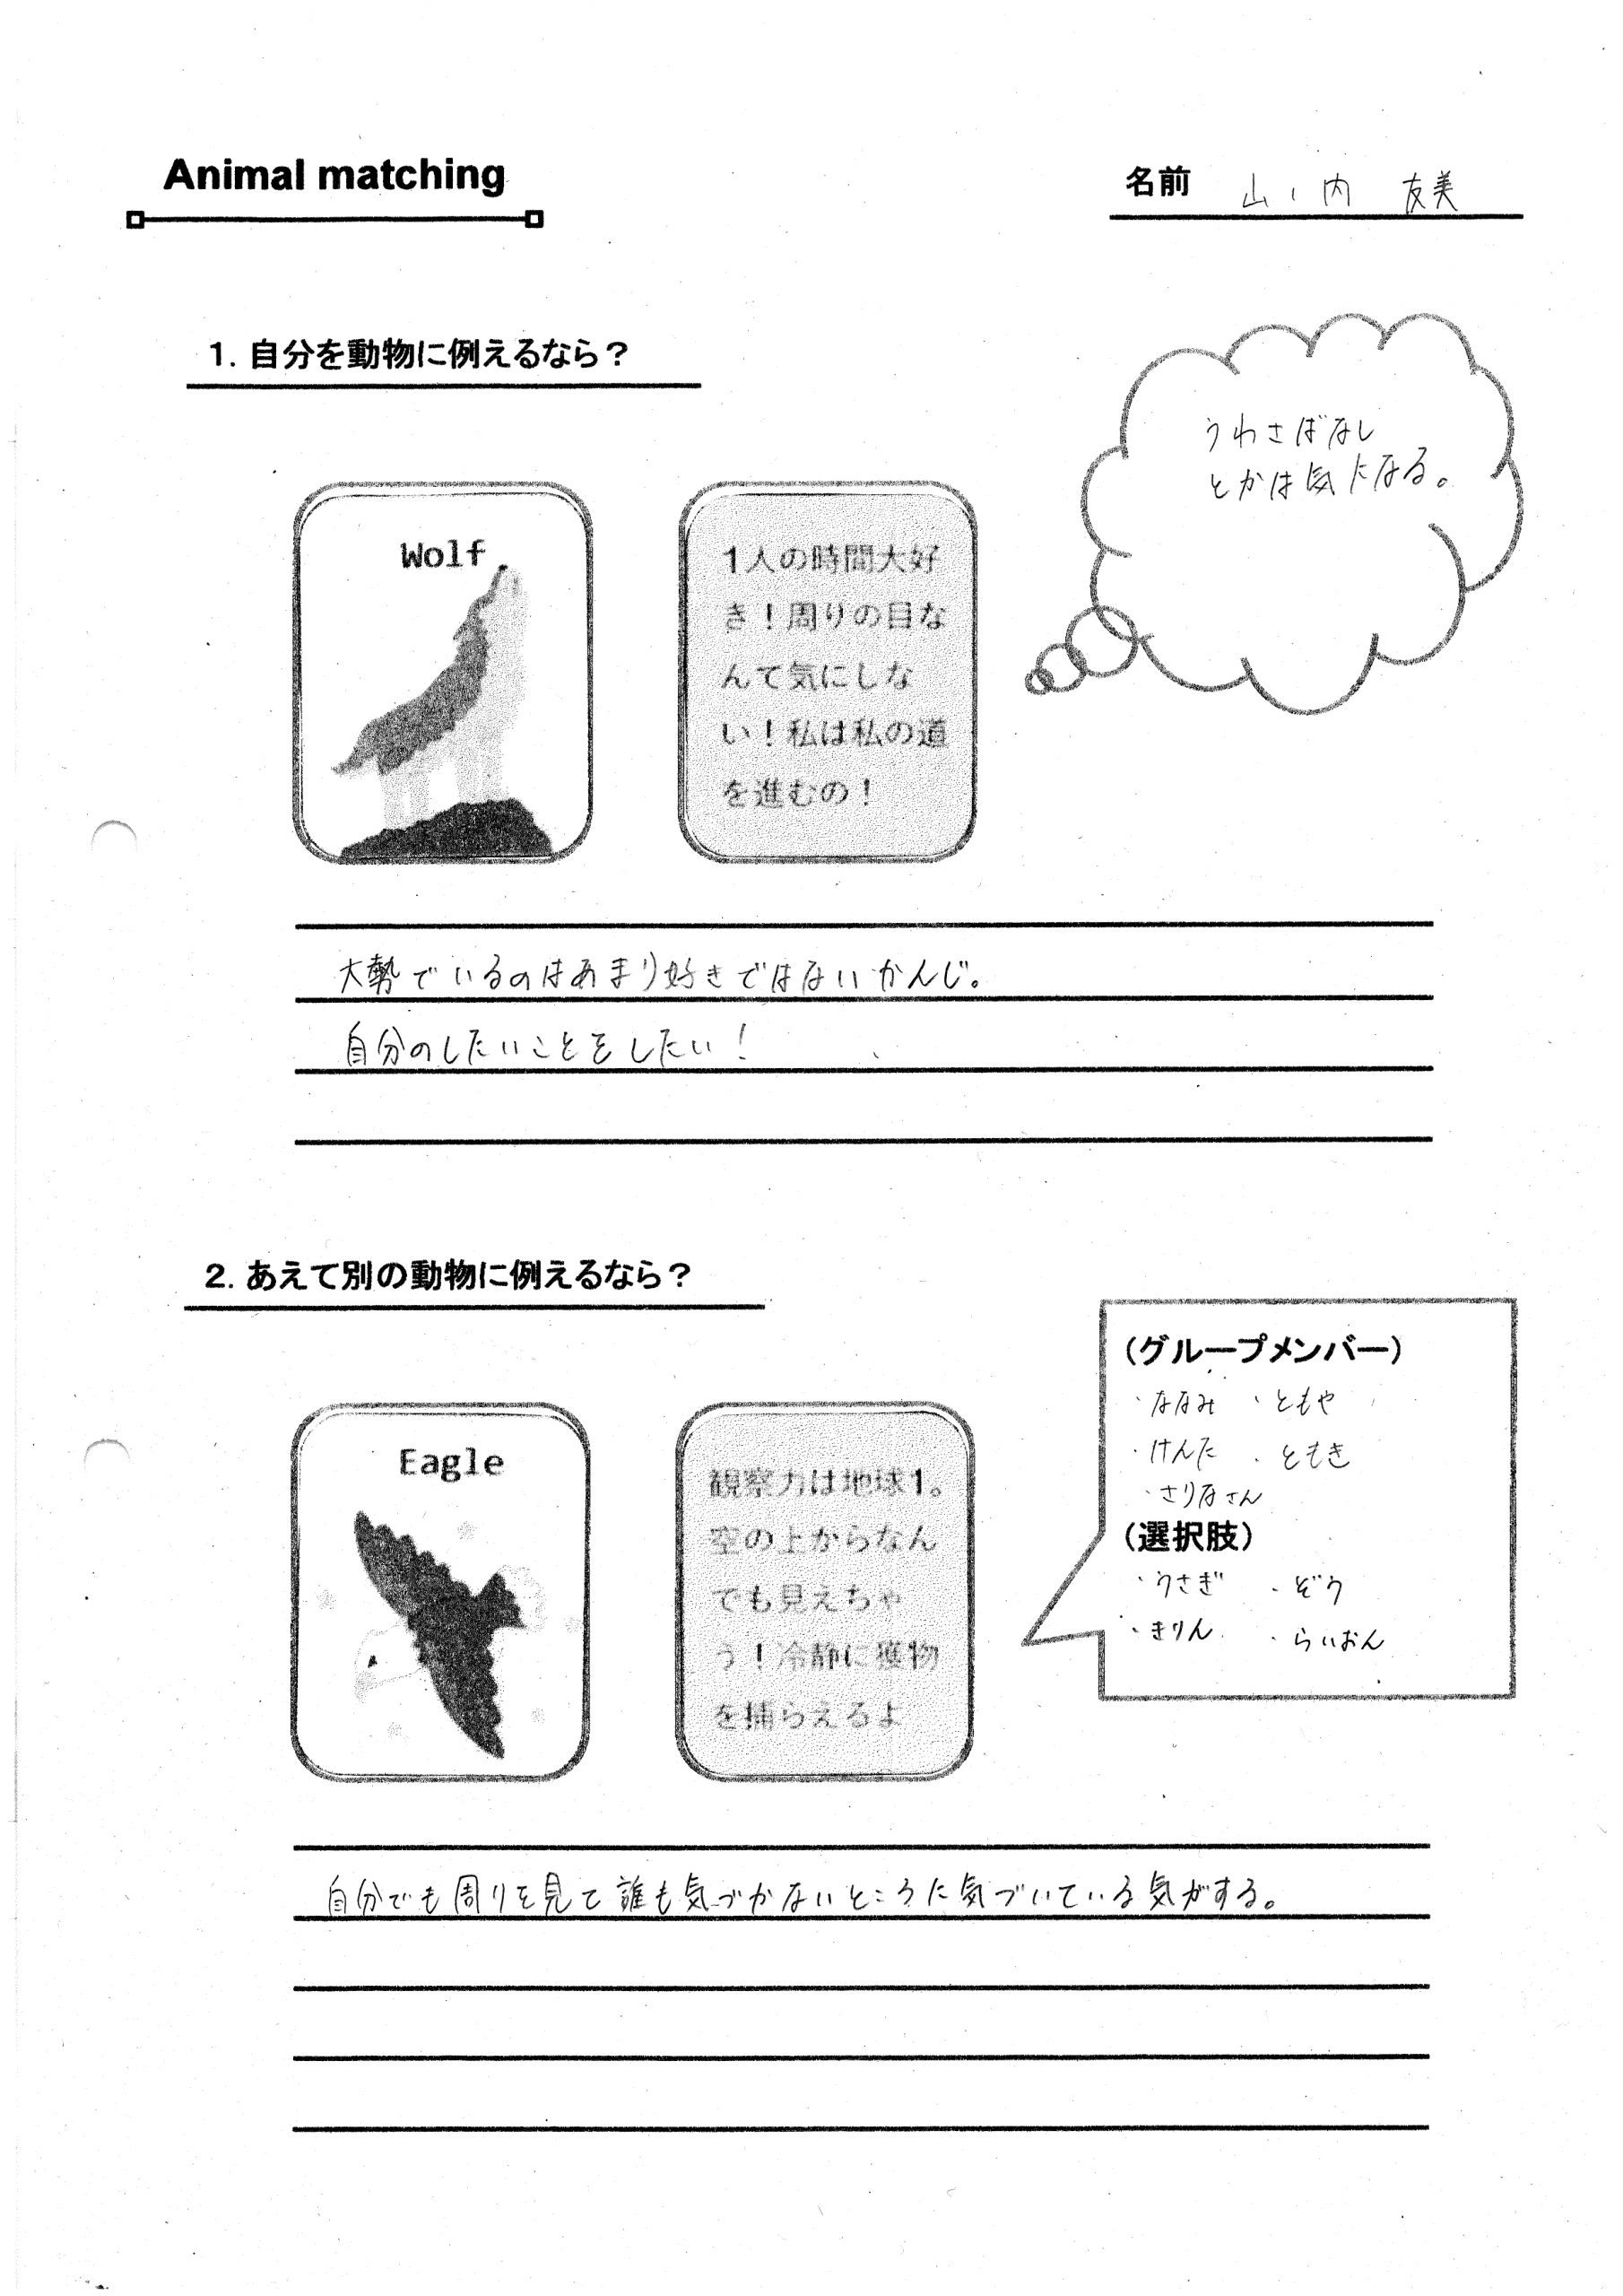 Animal matching
名前 山ノ内 友美
1. 自分を動物に例えるなら？
うわさばなし
とかは気になる。
Wolf
1人の時間大好
き！周りの目な
んて気にしな
い！私は私の道
を進むの！
大勢でいるのはあまり好きではないかんじ。
自分のしたいことをしたい！
2. あえて別の動物に例えるなら？
(グループメンバー)
・ななみ ・ともや
・けんた ・ともき
・さりなさん
(選択肢)
・うさぎ ・ぞう
・きりん ・らいおん
Eagle
観察力は地球1。
空の上からなん
でも見えちゃ
う！冷静に獲物
を捕らえるよ
自分でも周りを見て誰も気づかないところに気づいている気がする。